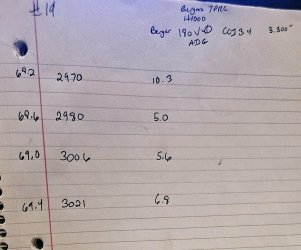 #19
Bergers 7PRC
H1000
Berger 190 VLD CCI 34 3.300"
ADG
69.2 2970 10.3
69.6 2980 5.0
69.0 3006 5.6
69.4 3021 6.8